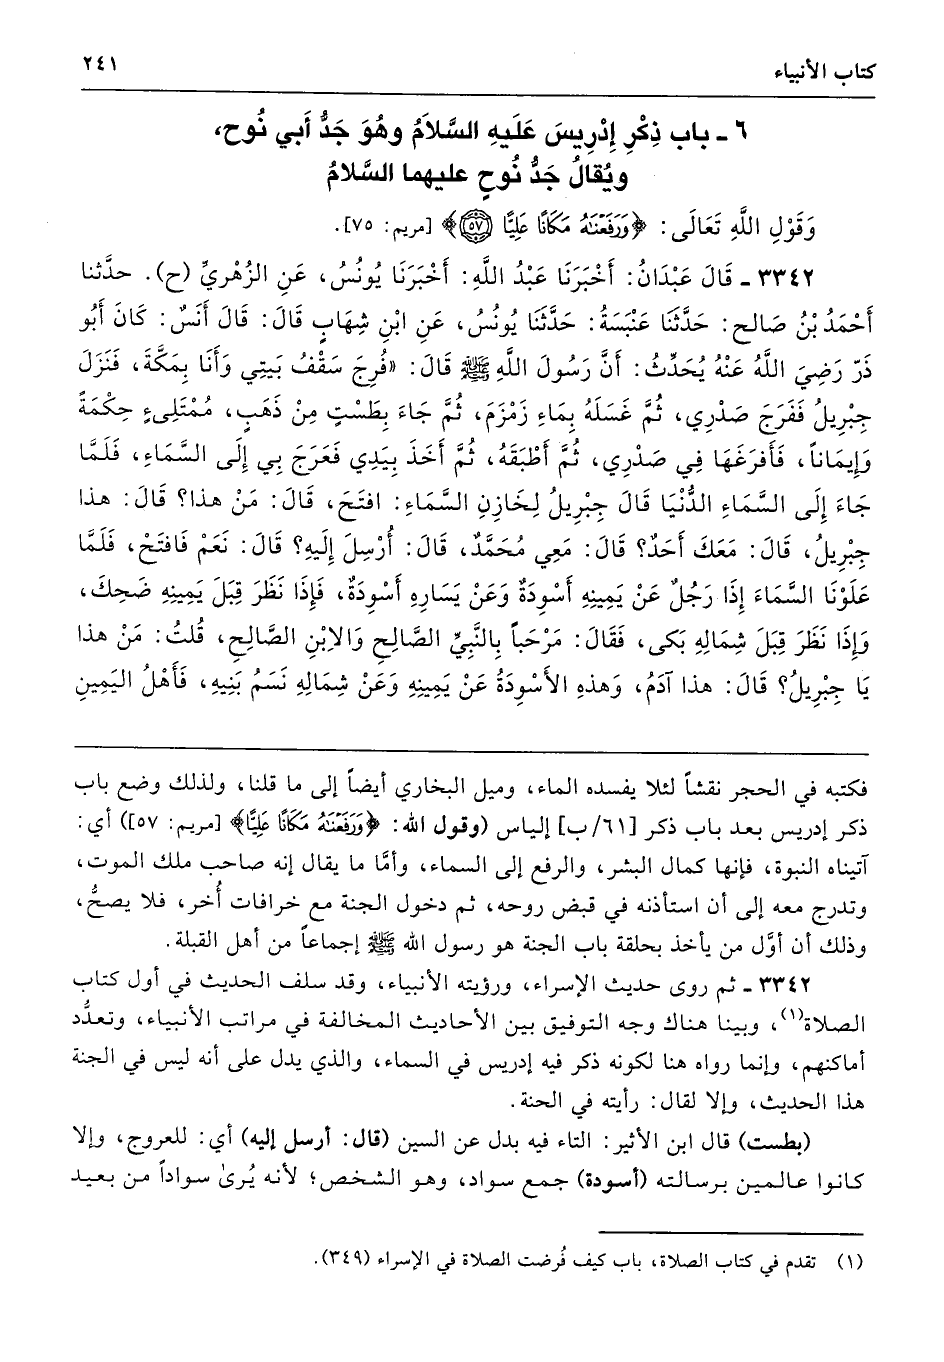 كتاب الأنبياء ٢٤١
٦ ـ باب ذِكْرِ إِدْرِيسَ عَلَيهِ السَّلاَمُ وهُوَ جَدُّ أَبي نُوح،
ويُقالُ جَدُّ نُوحٍ عليهما السَّلامُ
وَقَوْلِ اللَّهِ تَعَالَى: ﴿وَرَفَعْنَٰهُ مَكَانًا عَلِيًّا ٥٧﴾ [مريم: ٧٥].
٣٣٤٢ ـ قَالَ عَبْدَانُ: أَخْبَرَنَا عَبْدُ اللَّهِ: أَخْبَرَنَا يُونُسُ، عَنِ الزُّهْرِيِّ (ح). حدَّثنا
أَحْمَدُ بْنُ صَالح: حَدَّثَنَا عَنْبَسَةُ: حَدَّثَنَا يُونُسُ، عَنِ ابْنِ شِهَابٍ قَالَ: قَالَ أَنَسٌ: كَانَ أَبُو
ذَرٍّ رَضِيَ اللَّهُ عَنْهُ يُحَدِّثُ: أَنَّ رَسُولَ اللَّهِ ﷺ قَالَ: «فُرِجَ سَقْفُ بَيتِي وَأَنَا بِمَكَّةَ، فَنَزَلَ
جِبْرِيلُ فَفَرَجَ صَدْرِي، ثُمَّ غَسَلَهُ بِمَاءِ زَمْزَمَ، ثُمَّ جَاءَ بِطَسْتٍ مِنْ ذَهَبٍ، مُمْتَلِىءٍ حِكْمَةً
وَإِيمَاناً، فَأَفرَغَهَا فِي صَدْرِي، ثُمَّ أَطْبَقَهُ، ثُمَّ أَخَذَ بِيَدِي فَعَرَجَ بِي إِلَى السَّمَاءِ، فَلَمَّا
جَاءَ إِلَى السَّمَاءِ الدُّنْيَا قَالَ جِبْرِيلُ لِخَازِنِ السَّمَاءِ: افتَحَ، قَالَ: مَنْ هذا؟ قَالَ: هذا
جِبْرِيلُ، قَالَ: مَعَكَ أَحَدٌ؟ قَالَ: مَعِي مُحَمَّدٌ، قَالَ: أُرْسِلَ إِلَيهِ؟ قَالَ: نَعَمْ فَافتَحْ، فَلَمَّا
عَلَوْنَا السَّمَاءَ إِذَا رَجُلٌ عَنْ يَمِينِهِ أَسْوِدَةٌ وَعَنْ يَسَارِهِ أَسْوِدَةٌ، فَإِذَا نَظَرَ قِبَلَ يَمِينِهِ ضَحِكَ،
وَإِذَا نَظَرَ قِبَلَ شِمَالِهِ بَكى، فَقَالَ: مَرْحَباً بِالنَّبِيِّ الصَّالِحِ وَالاِبْنِ الصَّالِحِ، قُلتُ: مَنْ هذا
يَا جِبْرِيلُ؟ قَالَ: هذا آدَمُ، وَهذهِ الأَسْوِدَةُ عَنْ يَمِينِهِ وَعَنْ شِمَالِهِ نَسَمُ بَنِيهِ، فَأَهْلُ اليَمِينِ
فكتبه في الحجر نقشاً لئلا يفسده الماء، وميل البخاري أيضاً إلى ما قلنا، ولذلك وضع باب
ذكر إدريس بعد باب ذكر [٦١/ب] إلياس (وقول الله: ﴿وَرَفَعْنَٰهُ مَكَانًا عَلِيًّا﴾ [مريم: ٥٧]) أي:
آتيناه النبوة، فإنها كمال البشر، والرفع إلى السماء، وأمَّا ما يقال إنه صاحب ملك الموت،
وتدرج معه إلى أن استأذنه في قبض روحه، ثم دخول الجنة مع خرافات أُخر، فلا يصحُّ،
وذلك أن أوَّل من يأخذ بحلقة باب الجنة هو رسول الله ﷺ إجماعاً من أهل القبلة.
٣٣٤٢ ـ ثم روى حديث الإسراء، ورؤيته الأنبياء، وقد سلف الحديث في أول كتاب
الصلاة(١)، وبينا هناك وجه التوفيق بين الأحاديث المخالفة في مراتب الأنبياء، وتعدُّد
أماكنهم، وإنما رواه هنا لكونه ذكر فيه إدريس في السماء، والذي يدل على أنه ليس في الجنة
هذا الحديث، وإلا لقال: رأيته في الحنة.
(بطست) قال ابن الأثير: التاء فيه بدل عن السين (قال: أرسل إليه) أي: للعروج، وإلا
كانوا عالمين برسالته (أسودة) جمع سواد، وهو الشخص؛ لأنه يُرىٰ سواداً من بعيد
(١) تقدم في كتاب الصلاة، باب كيف فُرضت الصلاة في الإسراء (٣٤٩).